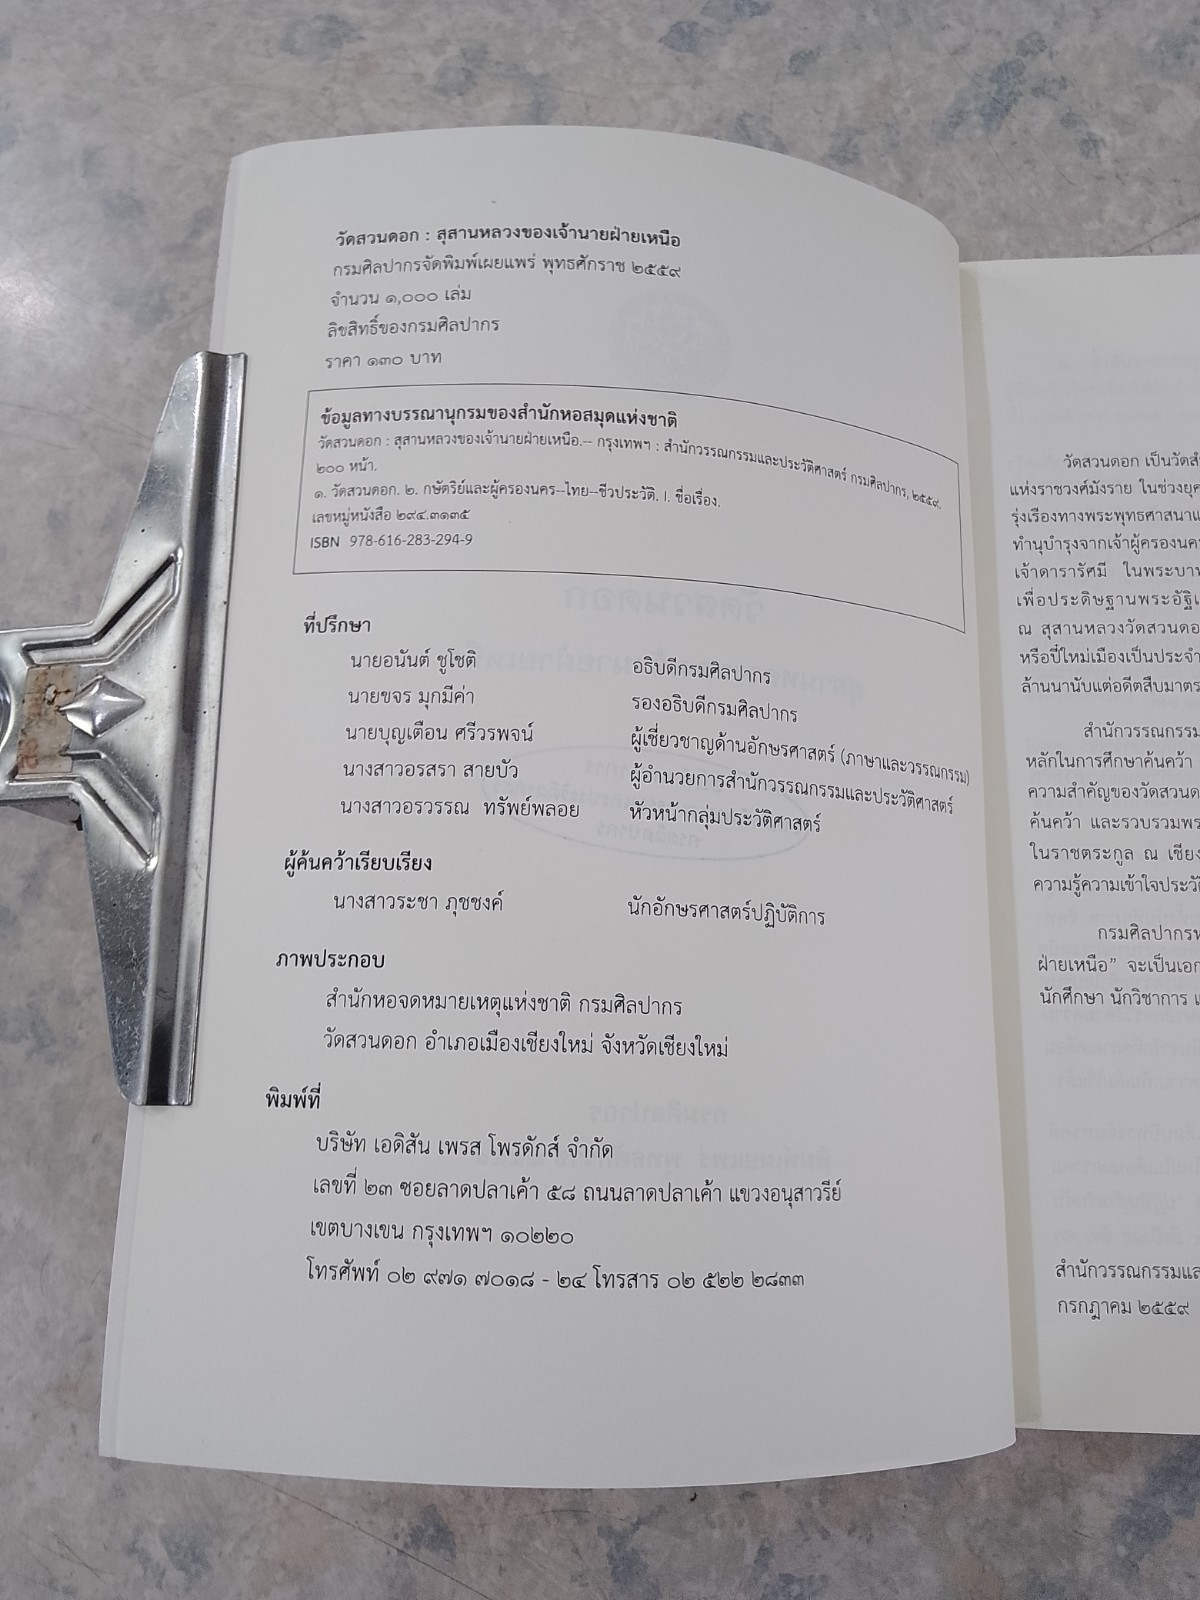 วัดสวนดอก : สุสานหลวงของเจ้านายฝ่ายเหนือ
กรมศิลปากรจัดพิมพ์เผยแพร่ พุทธศักราช ๒๕๕๙
จำนวน ๑,๐๐๐ เล่ม
ลิขสิทธิ์ของกรมศิลปากร
ราคา ๑๓๐ บาท
ข้อมูลทางบรรณานุกรมของสำนักหอสมุดแห่งชาติ
วัดสวนดอก : สุสานหลวงของเจ้านายฝ่ายเหนือ.-- กรุงเทพฯ : สำนักวรรณกรรมและประวัติศาสตร์ กรมศิลปากร, ๒๕๕๙.
๒๐๐ หน้า.
๑. วัดสวนดอก. ๒. กษัตริย์และผู้ครองนคร--ไทย--ชีวประวัติ. I. ชื่อเรื่อง.
เลขหมู่หนังสือ ๒๙๔.๓๑๓๕
ISBN 978-616-283-294-9
ที่ปรึกษา
นายอนันต์ ชูโชติ อธิบดีกรมศิลปากร
นายขจร มุกมีค่า รองอธิบดีกรมศิลปากร
นายบุญเตือน ศรีวรพจน์ ผู้เชี่ยวชาญด้านอักษรศาสตร์ (ภาษาและวรรณกรรม)
นางสาวอรสรา สายบัว ผู้อำนวยการสำนักวรรณกรรมและประวัติศาสตร์
นางสาวอรวรรณ ทรัพย์พลอย หัวหน้ากลุ่มประวัติศาสตร์
ผู้ค้นคว้าเรียบเรียง
นางสาวระชา ภุชชงค์ นักอักษรศาสตร์ปฏิบัติการ
ภาพประกอบ
สำนักหอจดหมายเหตุแห่งชาติ กรมศิลปากร
วัดสวนดอก อำเภอเมืองเชียงใหม่ จังหวัดเชียงใหม่
พิมพ์ที่
บริษัท เอดิสัน เพรส โพรดักส์ จำกัด
เลขที่ ๒๓ ซอยลาดปลาเค้า ๕๘ ถนนลาดปลาเค้า แขวงอนุสาวรีย์
เขตบางเขน กรุงเทพฯ ๑๐๒๒๐
โทรศัพท์ ๐๒ ๙๗๑ ๗๐๑๘ - ๒๔ โทรสาร ๐๒ ๕๒๒ ๒๘๓๓
วัดสวนดอก เป็นวัดสำ
แห่งราชวงศ์มังราย ในช่วงยุค
รุ่งเรืองทางพระพุทธศาสนาแ
ทำนุบำรุงจากเจ้าผู้ครองนคร
เจ้าดารารัศมี ในพระบาท
เพื่อประดิษฐานพระอัฐิเ
ณ สุสานหลวงวัดสวนดอ
หรือปี๋ใหม่เมืองเป็นประจำ
ล้านนานับแต่อดีตสืบมาตร
สำนักวรรณกรรม
หลักในการศึกษาค้นคว้า
ความสำคัญของวัดสวนด
ค้นคว้า และรวบรวมพร
ในราชตระกูล ณ เชียง
ความรู้ความเข้าใจประวั
กรมศิลปากรห
ฝ่ายเหนือ” จะเป็นเอก
นักศึกษา นักวิชาการ แ
สำนักวรรณกรรมแล
กรกฎาคม ๒๕๕๙